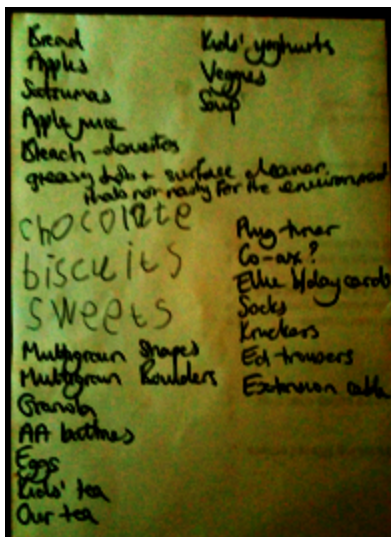 Bread
Apples
Satsumas
Apple juice
Bleach - domestos
greasy dish + surface cleaner
thats not nasty for the environment
chocolate
biscuits
sweets
Multigrain Shapes
Multigrain Rounders
Granola
AA batteries
Eggs
Kids' tea
Our tea
Kids' yoghurts
Veggies
Soup
Plug timer
Co-ax?
Ellie b/day cards
Socks
Knickers
Ed-trousers
Extension cable